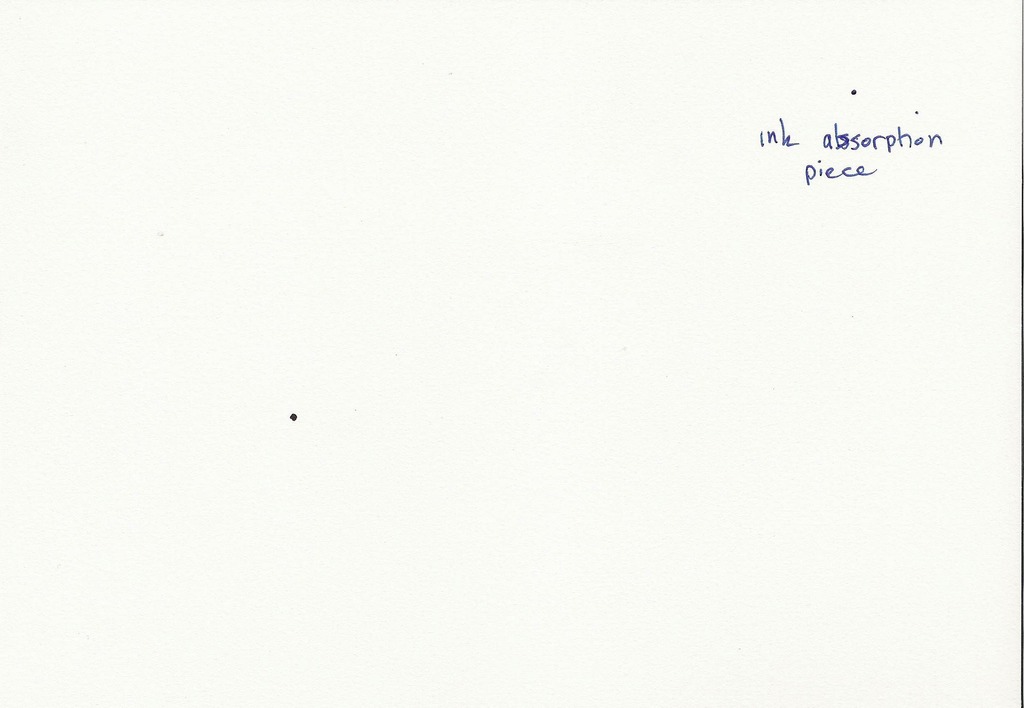 ink absorption
piece